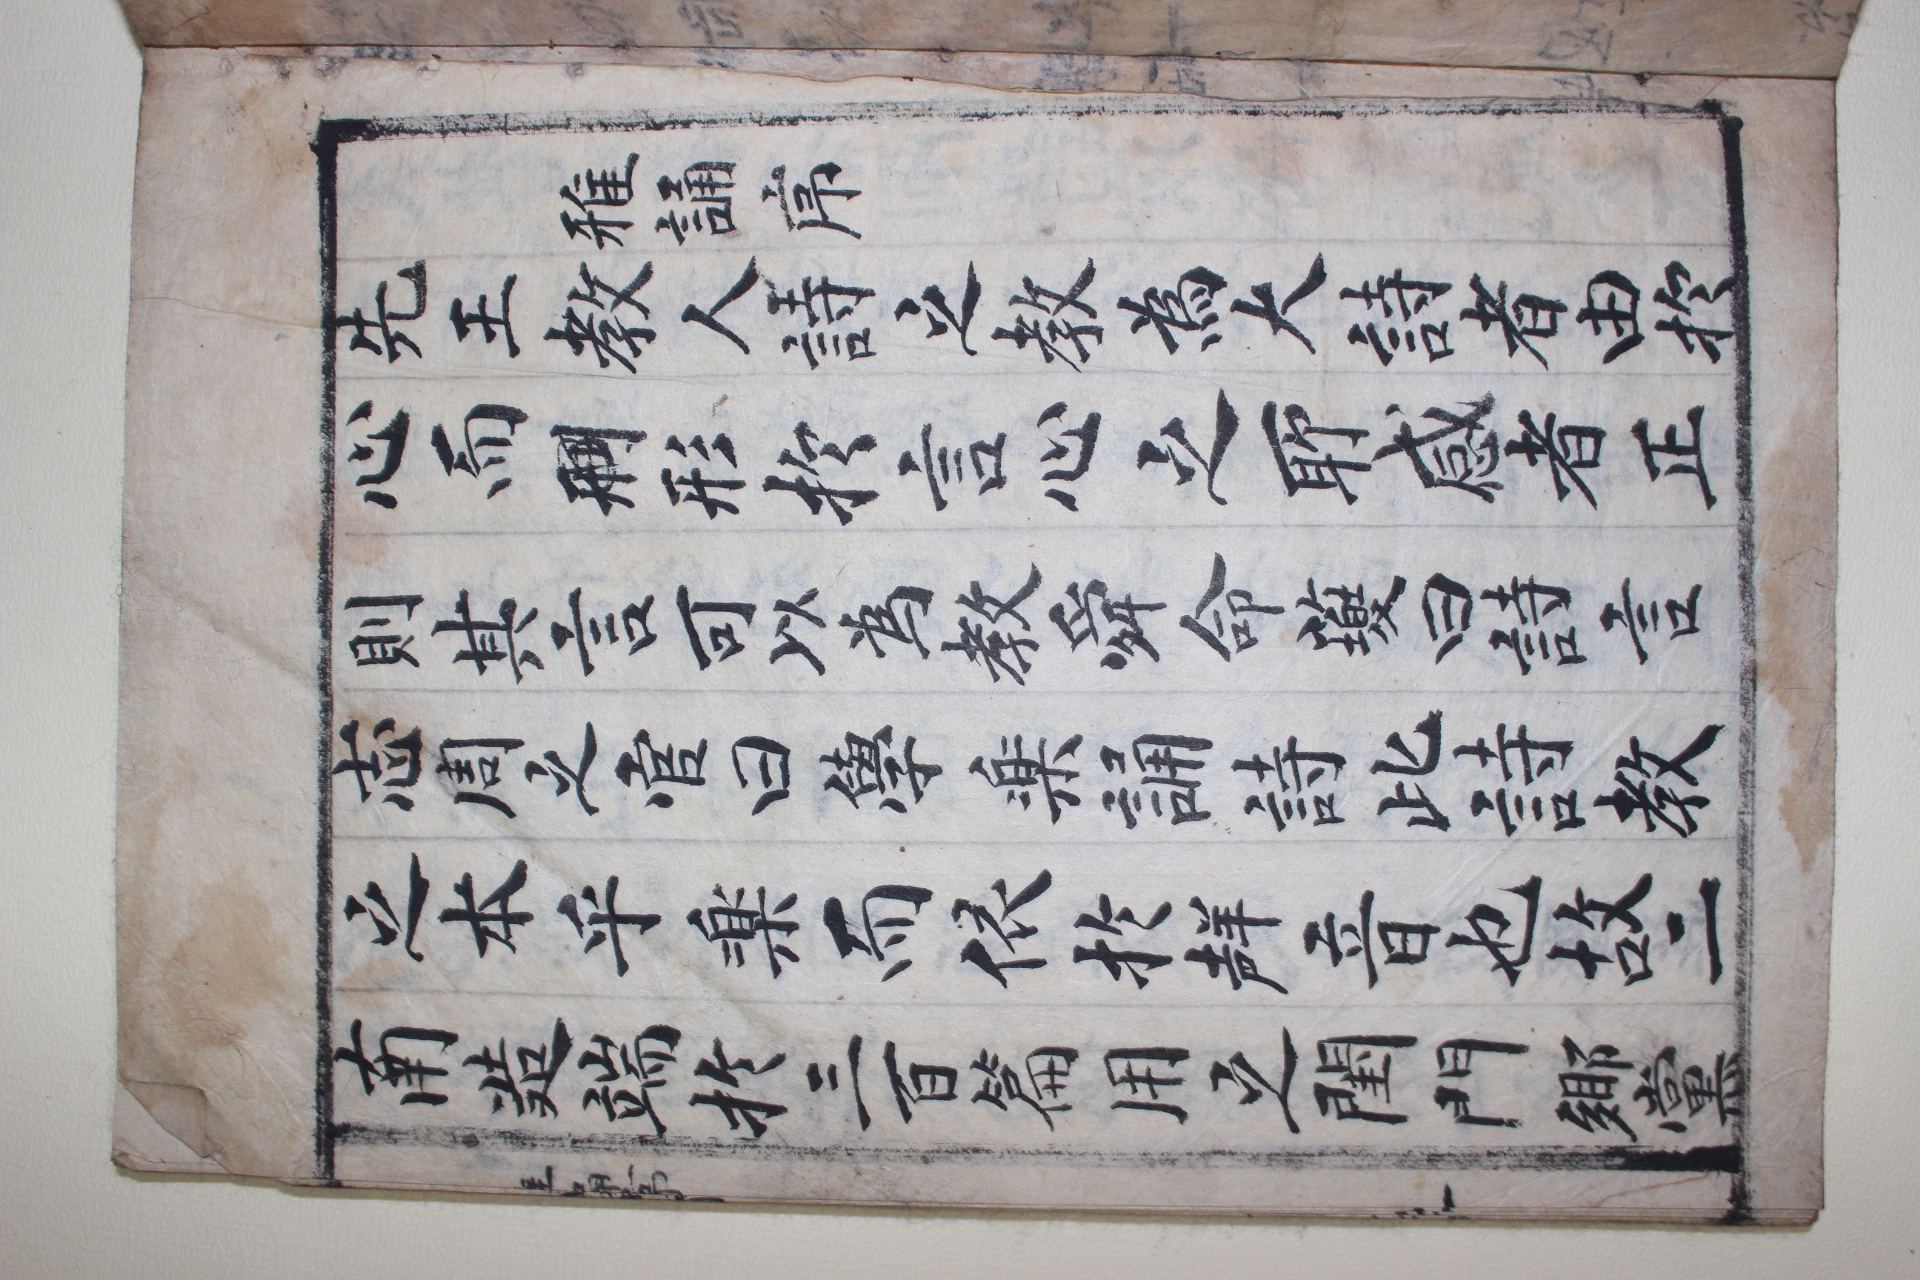 雅誦序
先王教人詩之教為大詩者由於
心而用形於言心之所感者正
則其言可以為教舜命夔曰詩言
志周之官曰學樂誦詩比詩教
之本乎樂而依於聲音也故二
南造端於三百篇用之閨門鄉黨
雅誦序